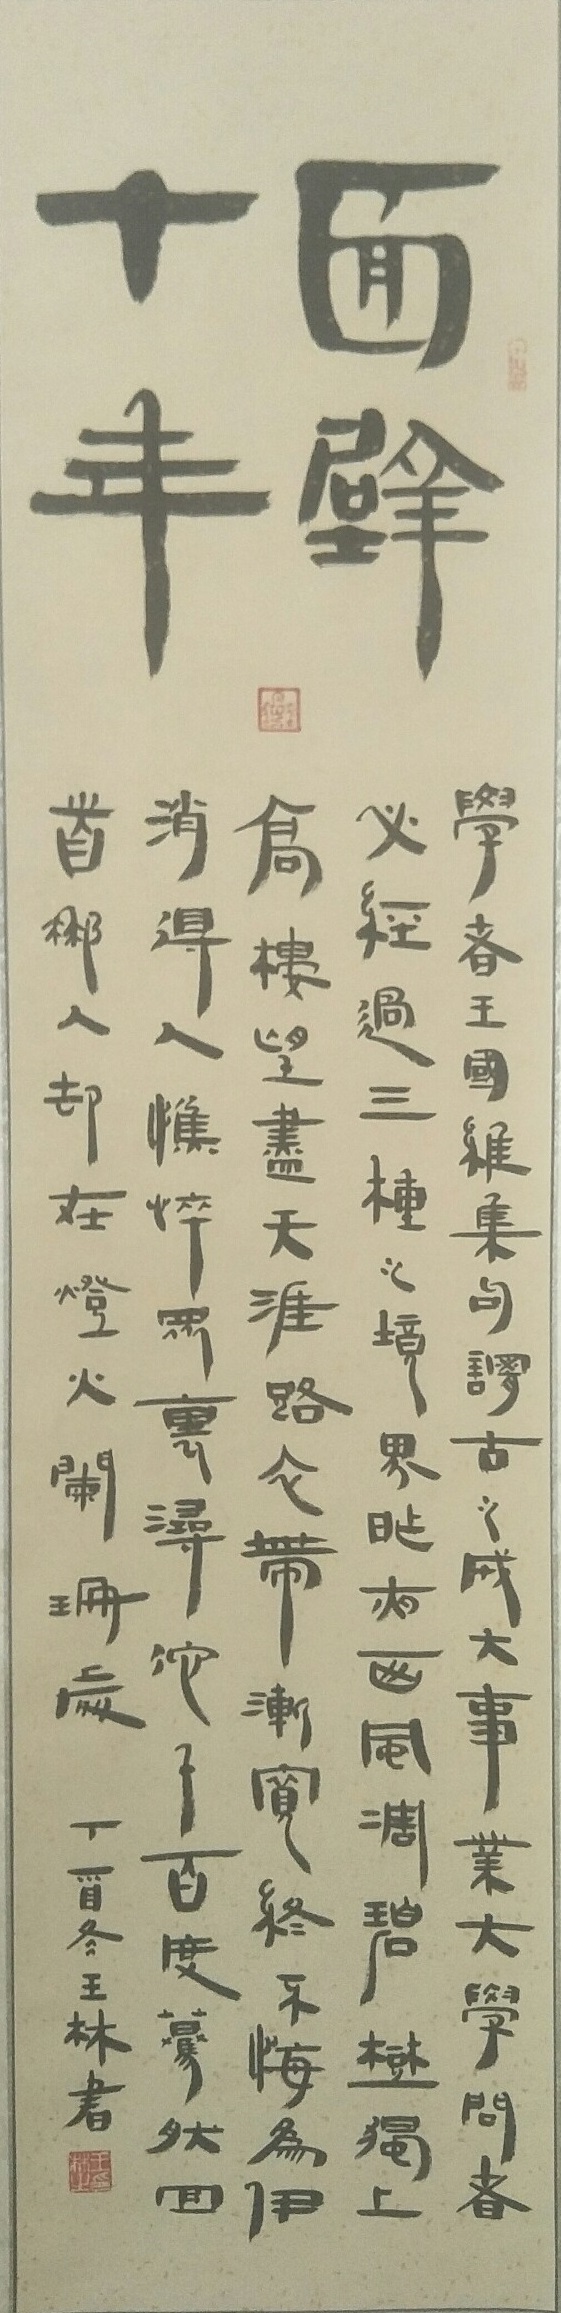 面壁
十年
學者王國維集句謂古之成大事業大學問者
必經過三種之境界昨夜西風凋碧樹獨上
高樓望盡天涯路衣帶漸寬終不悔為伊
消得人憔悴眾裏潯佗千百度驀然回
首那人却在燈火闌珊處 丁酉冬王林書